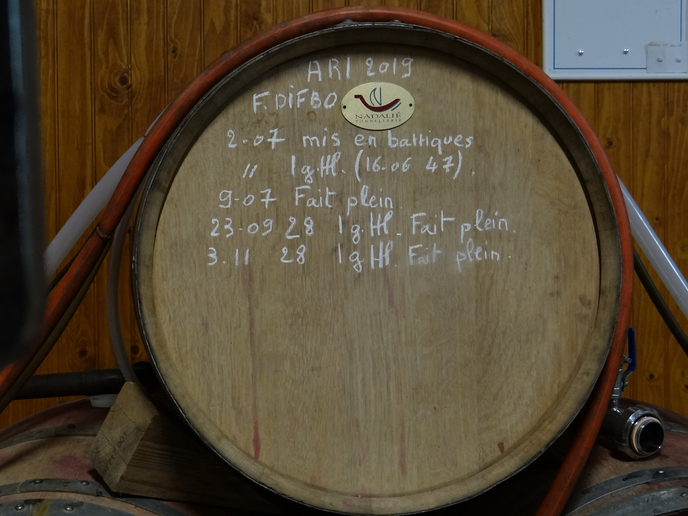 ARI 2019
F. DIFBO
NADALIÉ
TONNELLERIE
2-07 mis en barriques
" 1 g.Hl. (16-06 47).
9-07 Fait plein.
23-09 28 1 g Hl. Fait plein.
3.11 28 1 g Hl. Fait plein.